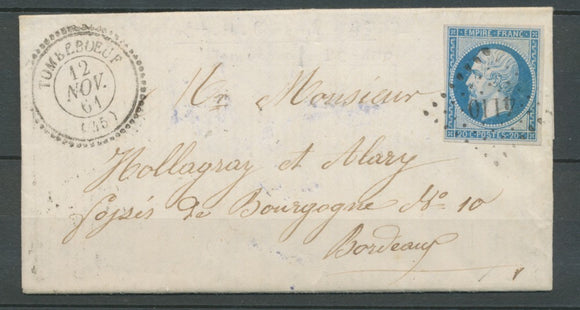 TOMBEBOEUF
12
NOV.
61
(45)
EMPIRE FRANC.
20 c POSTES 20 c
Mr Monsieur
Hollagray et Alary
fossés de Bourgogne No 10
Bordeaux